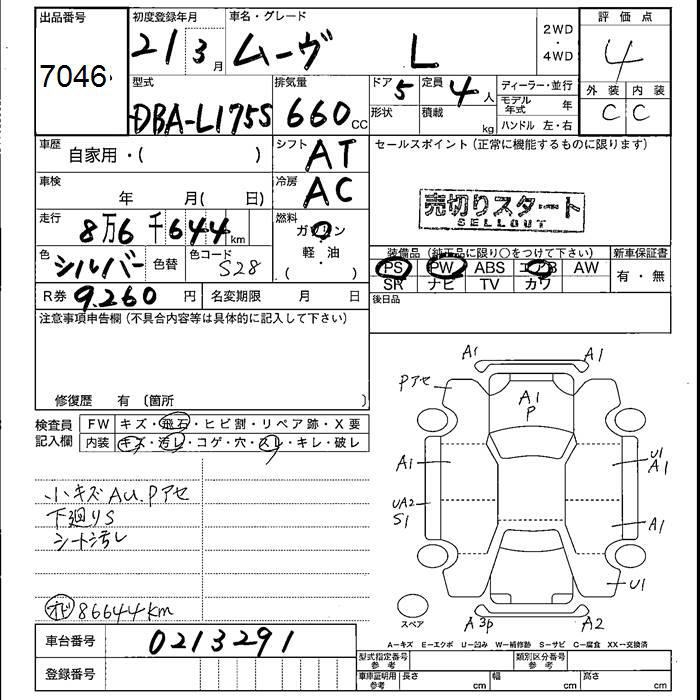 出品番号
7046
初度登録年月
21 3月
車名・グレード
ムーヴ L
2WD
・
4WD
評価点
4
外装 内装
C C
型式
DBA-L175S
排気量
660cc
ドア 5
形状
定員 4人
積載 kg
ディーラー・並行
モデル年式 年
ハンドル 左・右
車歴
自家用・( )
シフト AT
車検
年 月( 日)
冷房 AC
走行
8万6千644km
燃料
ガソリン
・
軽・油
( )
色 シルバー 色替
色コード S28
R券 9.260円
名変期限 月 日
セールスポイント(正常に機能するものに限ります)
売切りスタート
SELLOUT
装備品(純正品に限り○をつけて下さい)
PS PW ABS エアB AW
SR ナビ TV カワ
新車保証書
有・無
後日品
注意事項申告欄(不具合内容等は具体的に記入して下さい)
修復歴 有 〔箇所 〕
検査員記入欄
FW キズ・飛石・ヒビ割・リペア跡・X要
内装 キズ・汚レ・コゲ・穴・スレ・キレ・破レ
小キズAU.Pアセ
下廻りS
シート汚レ
オビ 86644km
A1 A1
Pアセ
A1
P
A1
U1
A1
UA2
S1
A1
U1
スペア
A3p A2
A-キズ E-エクボ U-凹み W-補修跡 S-サビ C-腐食 XX-交換済
車台番号 0213291
登録番号
型式指定番号参考
類別区分番号参考
車庫証明用参考
長さ cm
幅 cm
高さ cm